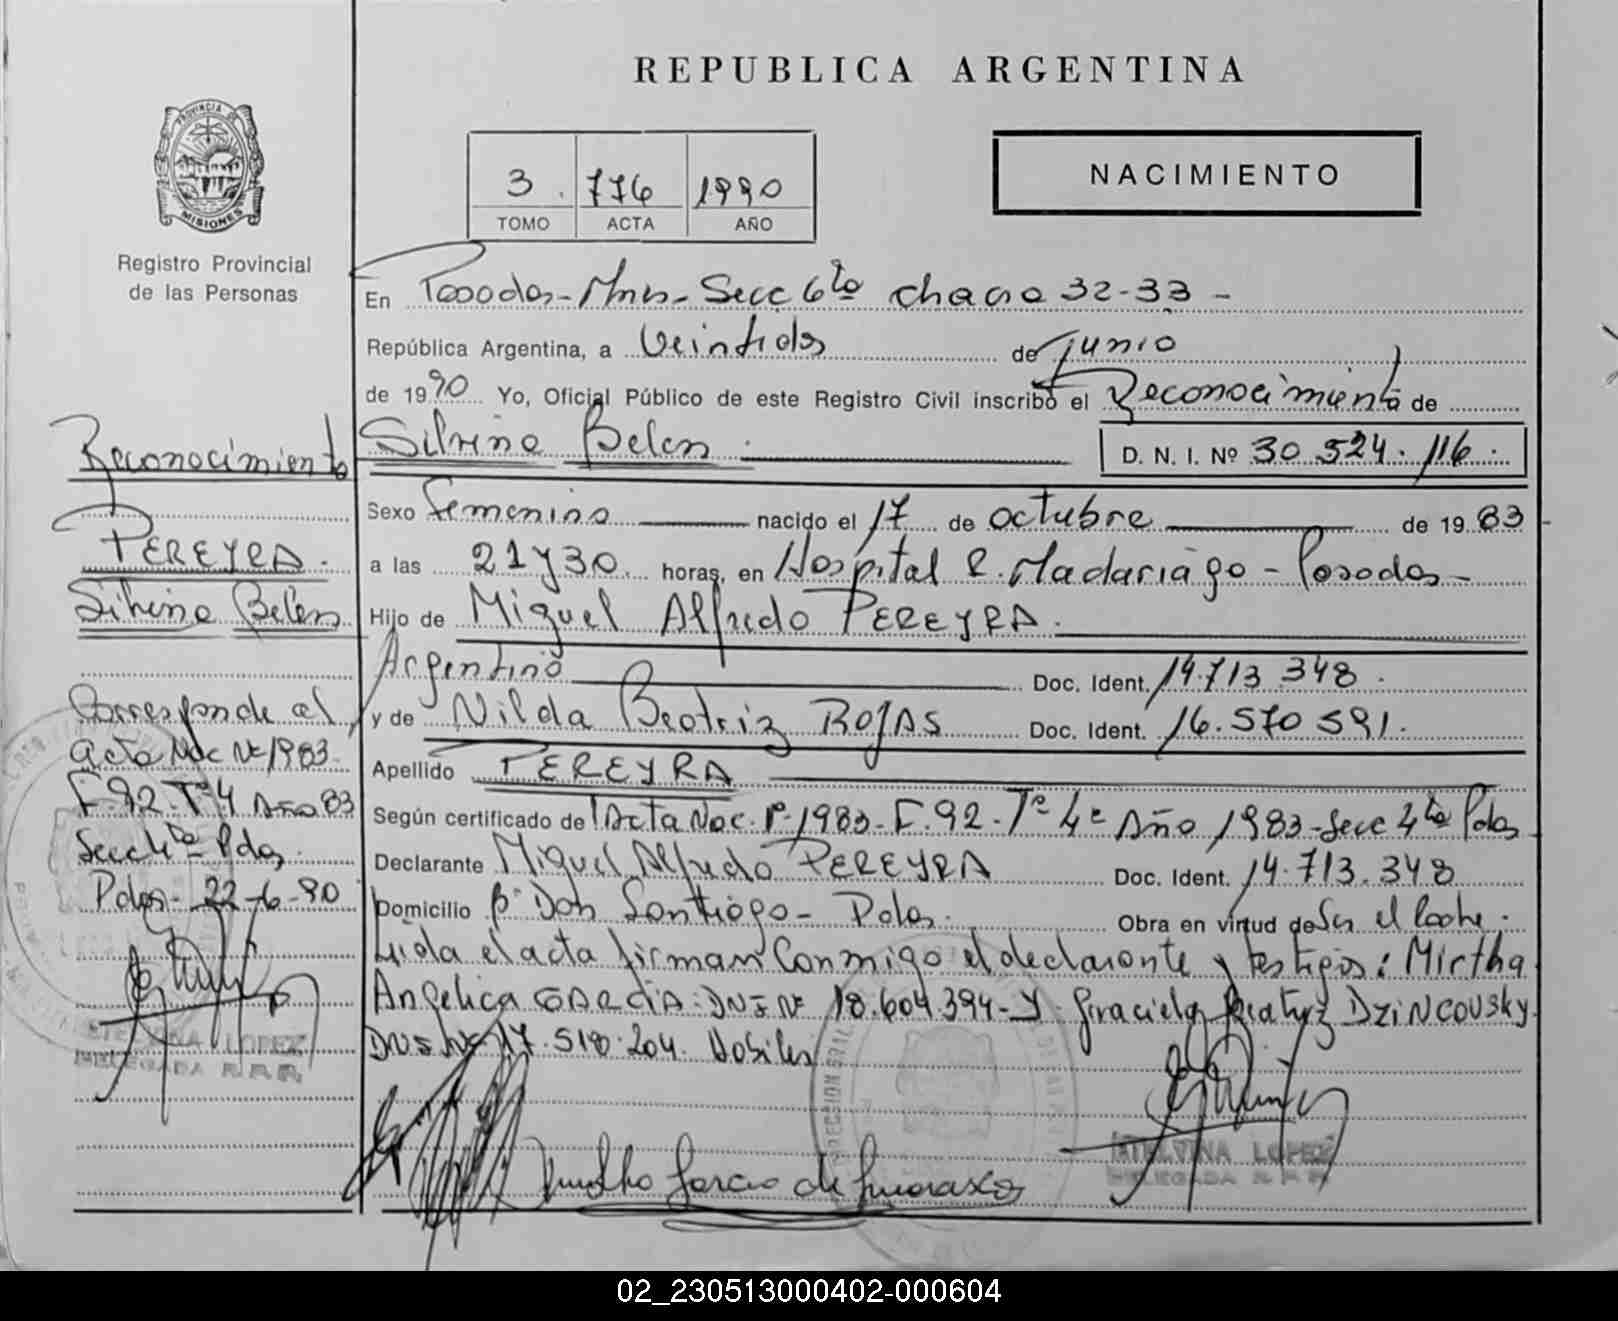 REPUBLICA ARGENTINA
PROVINCIA DE
MISIONES
Registro Provincial
de las Personas
3 776 1990
TOMO ACTA AÑO
NACIMIENTO
En Posadas - Mnes - Secc 6ta chacra 32-33 -
República Argentina, a veintidos de junio
de 1990 Yo, Oficial Público de este Registro Civil inscribo el Reconocimiento de
Silvina Belen D. N. I. Nº 30.524.116.
Sexo Femenino nacido el 17 de octubre de 1983
a las 21 y 30 horas, en Hospital R. Madariaga - Posadas -
Hijo de Miguel Alfredo PEREYRA.
Argentino Doc. Ident. 14.713.348.
y de Nilda Beatriz ROJAS Doc. Ident. 16.570.591.
Apellido PEREYRA
Según certificado de Acta Nac. Nº 1983 - F. 92 - Tº 4º Año 1983 - Secc 4ta Pdas
Declarante Miguel Alfredo PEREYRA Doc. Ident. 14.713.348
Domicilio Bº Don Santiago - Pdas. Obra en virtud de Ser el Padre.
Leida el acta firman conmigo el declarante y testigos: Mirtha
Angelica GARCIA: DNI Nº 18.604.394 - y Graciela Beatriz DZINCOVSKY
DNI Nº 17.518.204.
Reconocimiento
PEREYRA.
Silvina Belen
Corresponde al
acta Nac Nº 1983.
F. 92. Tº 4 Año 83
Secc 4ta Pdas.
Pdas - 22-6-90
ETELVINA LOPEZ
DELEGADA R.P.P.
ETELVINA LOPEZ
DELEGADA R.P.P.
02_230513000402-000604